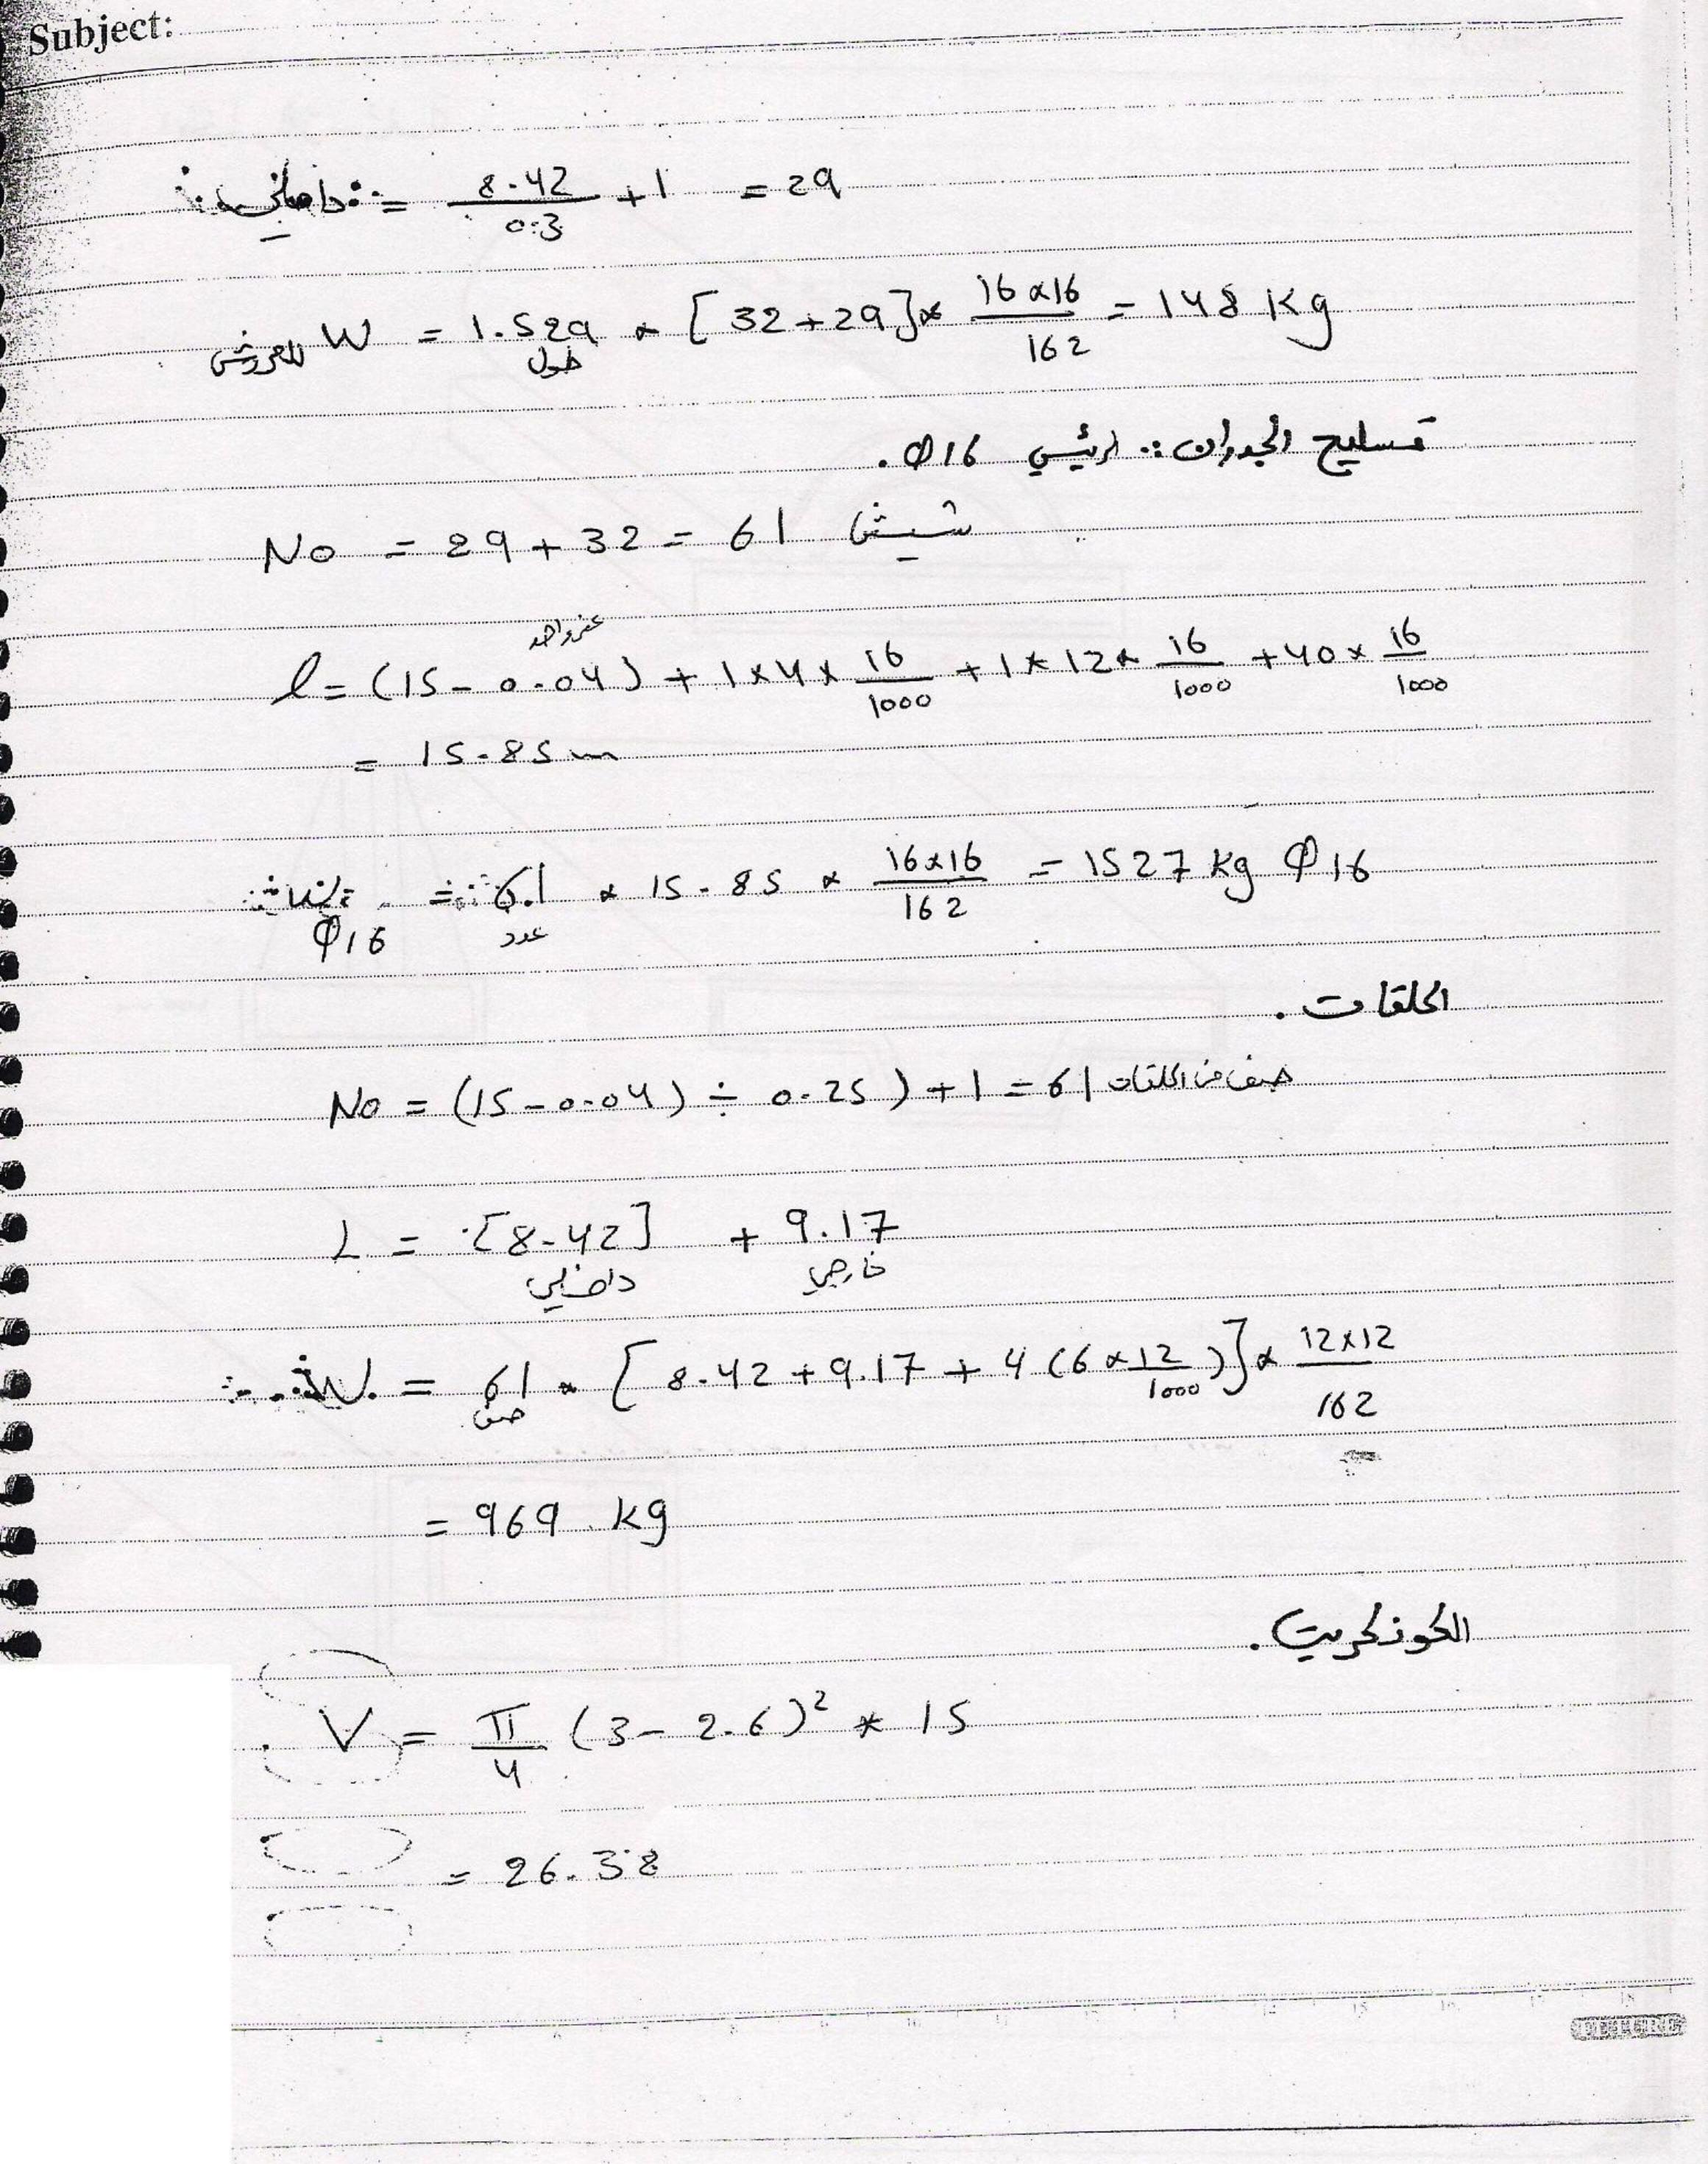 Subject:
داخلي = 8.42/0.3 + 1 = 29
W = 1.529 * [32+29] * 16*16/162 = 148 Kg
طول
تسليح الجدران :: رئيسي Ø16.
No = 29 + 32 = 61 شيش
l = (15 - 0.04) + 1*4* 16/1000 + 1*12* 16/1000 + 40* 16/1000
= 15.85 m
= 61 * 15.85 * 16*16/162 = 1527 kg Ø16
Ø16 عدد
الحلقات.
No = (15 - 0.04) ÷ 0.25) + 1 = 61 صف من الحلقات
L = [8.42] + 9.17
داخلي خارجي
W = 61 * [8.42 + 9.17 + 4 (6 * 12/1000)] * 12*12/162
صف
= 969 kg
الكونكريت.
V = π/4 (3 - 2.6)² * 15
= 26.38
FUTURE